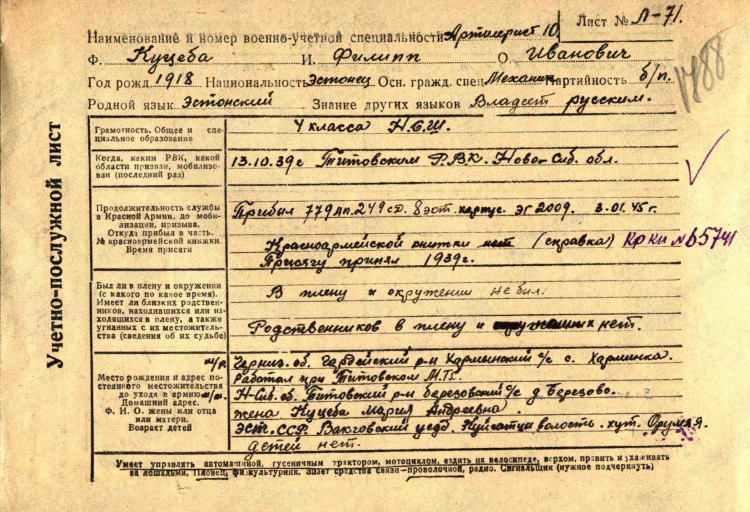 Лист № Л-71.
Наименование и номер военно-учетной специальности Артилерист 10
Ф. Куцеба И. Филипп О. Иванович
Год рожд. 1918 Национальность Эстонец Осн. гражд. спец. Механик Партийность б/п.
Родной язык Эстонский Знание других языков Владеет русским.
1488
Учетно-послужной лист
Грамотность, Общее и специальное образование
4 класса Н.С.Ш.
Когда, каким РВК, какой области призван, мобилизован (последний раз)
13.10.39г Титовским Р.В.К. Ново-Сиб. обл.
Продолжительность службы в Красной Армии, до мобилизации, призыва. Откуда прибыл в часть. № красноармейской книжки. Время присяги
Прибыл 779 ап. 249 сд. 8 эст. корпус. ЭГ 2009. 3.01.45г.
Красноармейской книжки нет (справка) Кр кн №
Присягу принял 1939г.
Был ли в плену и окружении (с какого по какое время). Имеет ли близких родственников, находившихся или находящихся в плену, а также угнанных с их местожительства (сведения об их судьбе)
В плену и окружении не был.
Родственников в плену и нет.
Место рождения и адрес постоянного местожительства до ухода в армию. Домашний адрес. Ф. И. О. жены или отца или матери. Возраст детей
м/р Черниг. об. р-н с/с с. Харминка.
Работал при Титовском М.Т.С.
Н-Сиб. об. Титовский р-н Березовский с/с д. Березово.
жена Куцеба Мария Андреевна.
Эст. ССР. уезд. волость. хут.
детей нет.
Умеет управлять автомашиной, гусеничным трактором, мотоциклом, ездить на велосипеде, верхом, править и ухаживать за лошадьми. Пловец, физкультурник. Знает средства связи—проволочной, радио. Сигнальщик (нужное подчеркнуть)